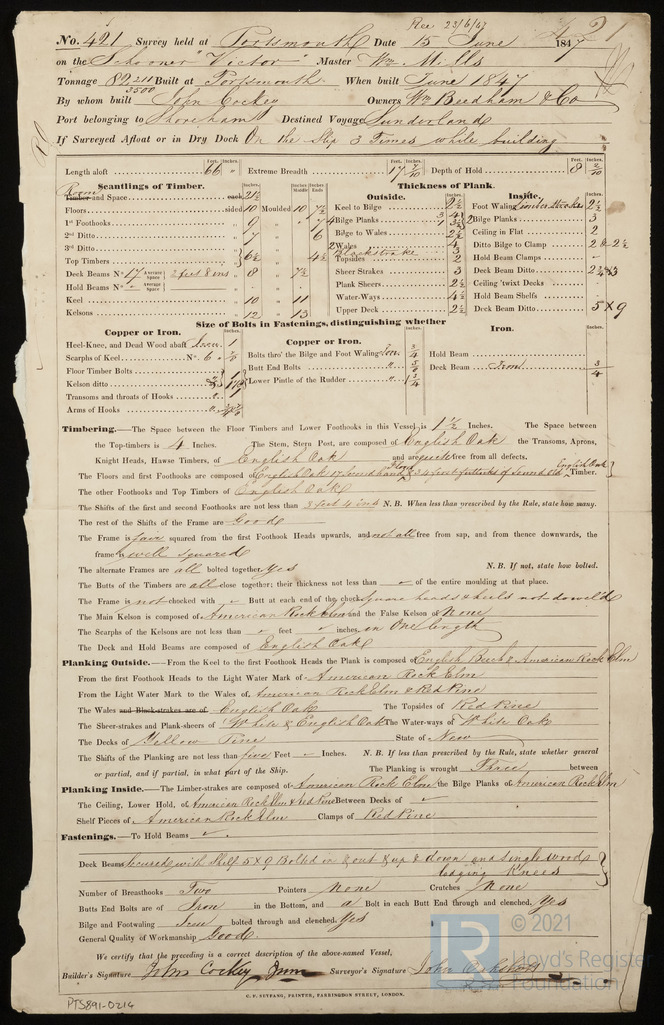 Rec 23/6/47
No. 421 Survey held at Portsmouth Date 15 June 1847
on the Schooner "Victor" Master Wm Mills
Tonnage 82 211/3500 Built at Portsmouth When built June 1847
By whom built John Cockey Owners Wm Beedham & Co
Port belonging to Shoreham Destined Voyage Sunderland
If Surveyed Afloat or in Dry Dock On the Slip 3 Times while building
Feet. Inches. Feet. Inches. Feet. Inches.
Length aloft 66 " Extreme Breadth 17 7/10 Depth of Hold 8 2/10
Scantlings of Timber. Thickness of Plank.
Room
Timber and Space each 21½
Outside. Inside.
Floors sided 10 Moulded 10 7½
Keel to Bilge 2½
Foot Waling Limber Strake 2½
1st Foothooks 9 7
Bilge Planks
Bilge Planks 3
2nd Ditto 7 6
Bilge to Wales 2½
Ceiling in Flat 2
3rd Ditto
Wales 4
Ditto Bilge to Clamp 2 & 2½
Top Timbers 6½ 4½
Blackstrake 3
Topsides 2
Hold Beam Clamps
Deck Beams No. 17 Average Space 2 feet 8 ins 8 7½
Sheer Strakes 3
Deck Beam Ditto
Hold Beams No. Average Space
Plank Sheers 2½
Ceiling 'twixt Decks
Keel 10 11
Water-Ways 4½
Hold Beam Shelfs
Kelsons 12 13
Upper Deck 2½
Deck Beam Ditto 5 × 9
Size of Bolts in Fastenings, distinguishing whether
Copper or Iron. Copper or Iron. Iron.
Heel-Knee, and Dead Wood abaft Iron 1
Scarphs of Keel No. 6
Bolts thro' the Bilge and Foot Waling Iron 3/4
Hold Beam
Floor Timber Bolts
Butt End Bolts " 5/8
Deck Beam Iron 3/4
Kelson ditto
Lower Pintle of the Rudder " 1 3/4
Transoms and throats of Hooks
Arms of Hooks
Timbering.—The Space between the Floor Timbers and Lower Foothooks in this Vessel is 1½ Inches. The Space between
the Top-timbers is 4 Inches. The Stem, Stern Post, are composed of English Oak the Transoms, Aprons,
Knight Heads, Hawse Timbers, of English Oak and are quite free from all defects.
The Floors and first Foothooks are composed of English Oak Floors first futtocks of sound old English Oak Timber.
The other Foothooks and Top Timbers of English Oak
The Shifts of the first and second Foothooks are not less than 3 feet 4 ins N. B. When less than prescribed by the Rule, state how many.
The rest of the Shifts of the Frame are Good
The Frame is fair squared from the first Foothook Heads upwards, and not all free from sap, and from thence downwards, the
frame is well squared
The alternate Frames are all bolted together Yes N. B. If not, state how bolted.
The Butts of the Timbers are all close together; their thickness not less than of the entire moulding at that place.
The Frame is not chocked with Butt at each end of the chock square heads & heels not dowel'd
The Main Kelson is composed of American Rock Elm and the False Kelson of None
The Scarphs of the Kelsons are not less than feet inches in One length
The Deck and Hold Beams are composed of English Oak
Planking Outside.—From the Keel to the first Foothook Heads the Plank is composed of English Beech & American Rock Elm
From the first Foothook Heads to the Light Water Mark of American Rock Elm
From the Light Water Mark to the Wales of American Rock Elm & Red Pine
The Wales and Black-strakes are of English Oak The Topsides of Red Pine
The Sheer-strakes and Plank-sheers of White & English Oak The Water-ways of White Oak
The Decks of Yellow Pine State of New
The Shifts of the Planking are not less than five Feet Inches. N. B. If less than prescribed by the Rule, state whether general
or partial, and if partial, in what part of the Ship. The Planking is wrought Three between
Planking Inside.—The Limber-strakes are composed of American Rock Elm the Bilge Planks of American Rock Elm
The Ceiling, Lower Hold, of American Rock Elm & Red Pine Between Decks of
Shelf Pieces of American Rock Elm Clamps of Red Pine
Fastenings.—To Hold Beams
Deck Beams Secured with Shelf 5 × 9 Bolted in & out & up & down and single wood
lodging Knees
Number of Breasthooks Two Pointers None Crutches None
Butts End Bolts are of Iron in the Bottom, and a Bolt in each Butt End through and clenched. Yes
Bilge and Footwaling Iron bolted through and clenched. Yes
General Quality of Workmanship Good.
We certify that the preceding is a correct description of the above-named Vessel,
Builder's Signature John Cockey Junr Surveyor's Signature John
C. F. SEYFANG, PRINTER, FARRINGDON STREET, LONDON.
PTS891-0214
© 2021
Lloyd's Register
Foundation